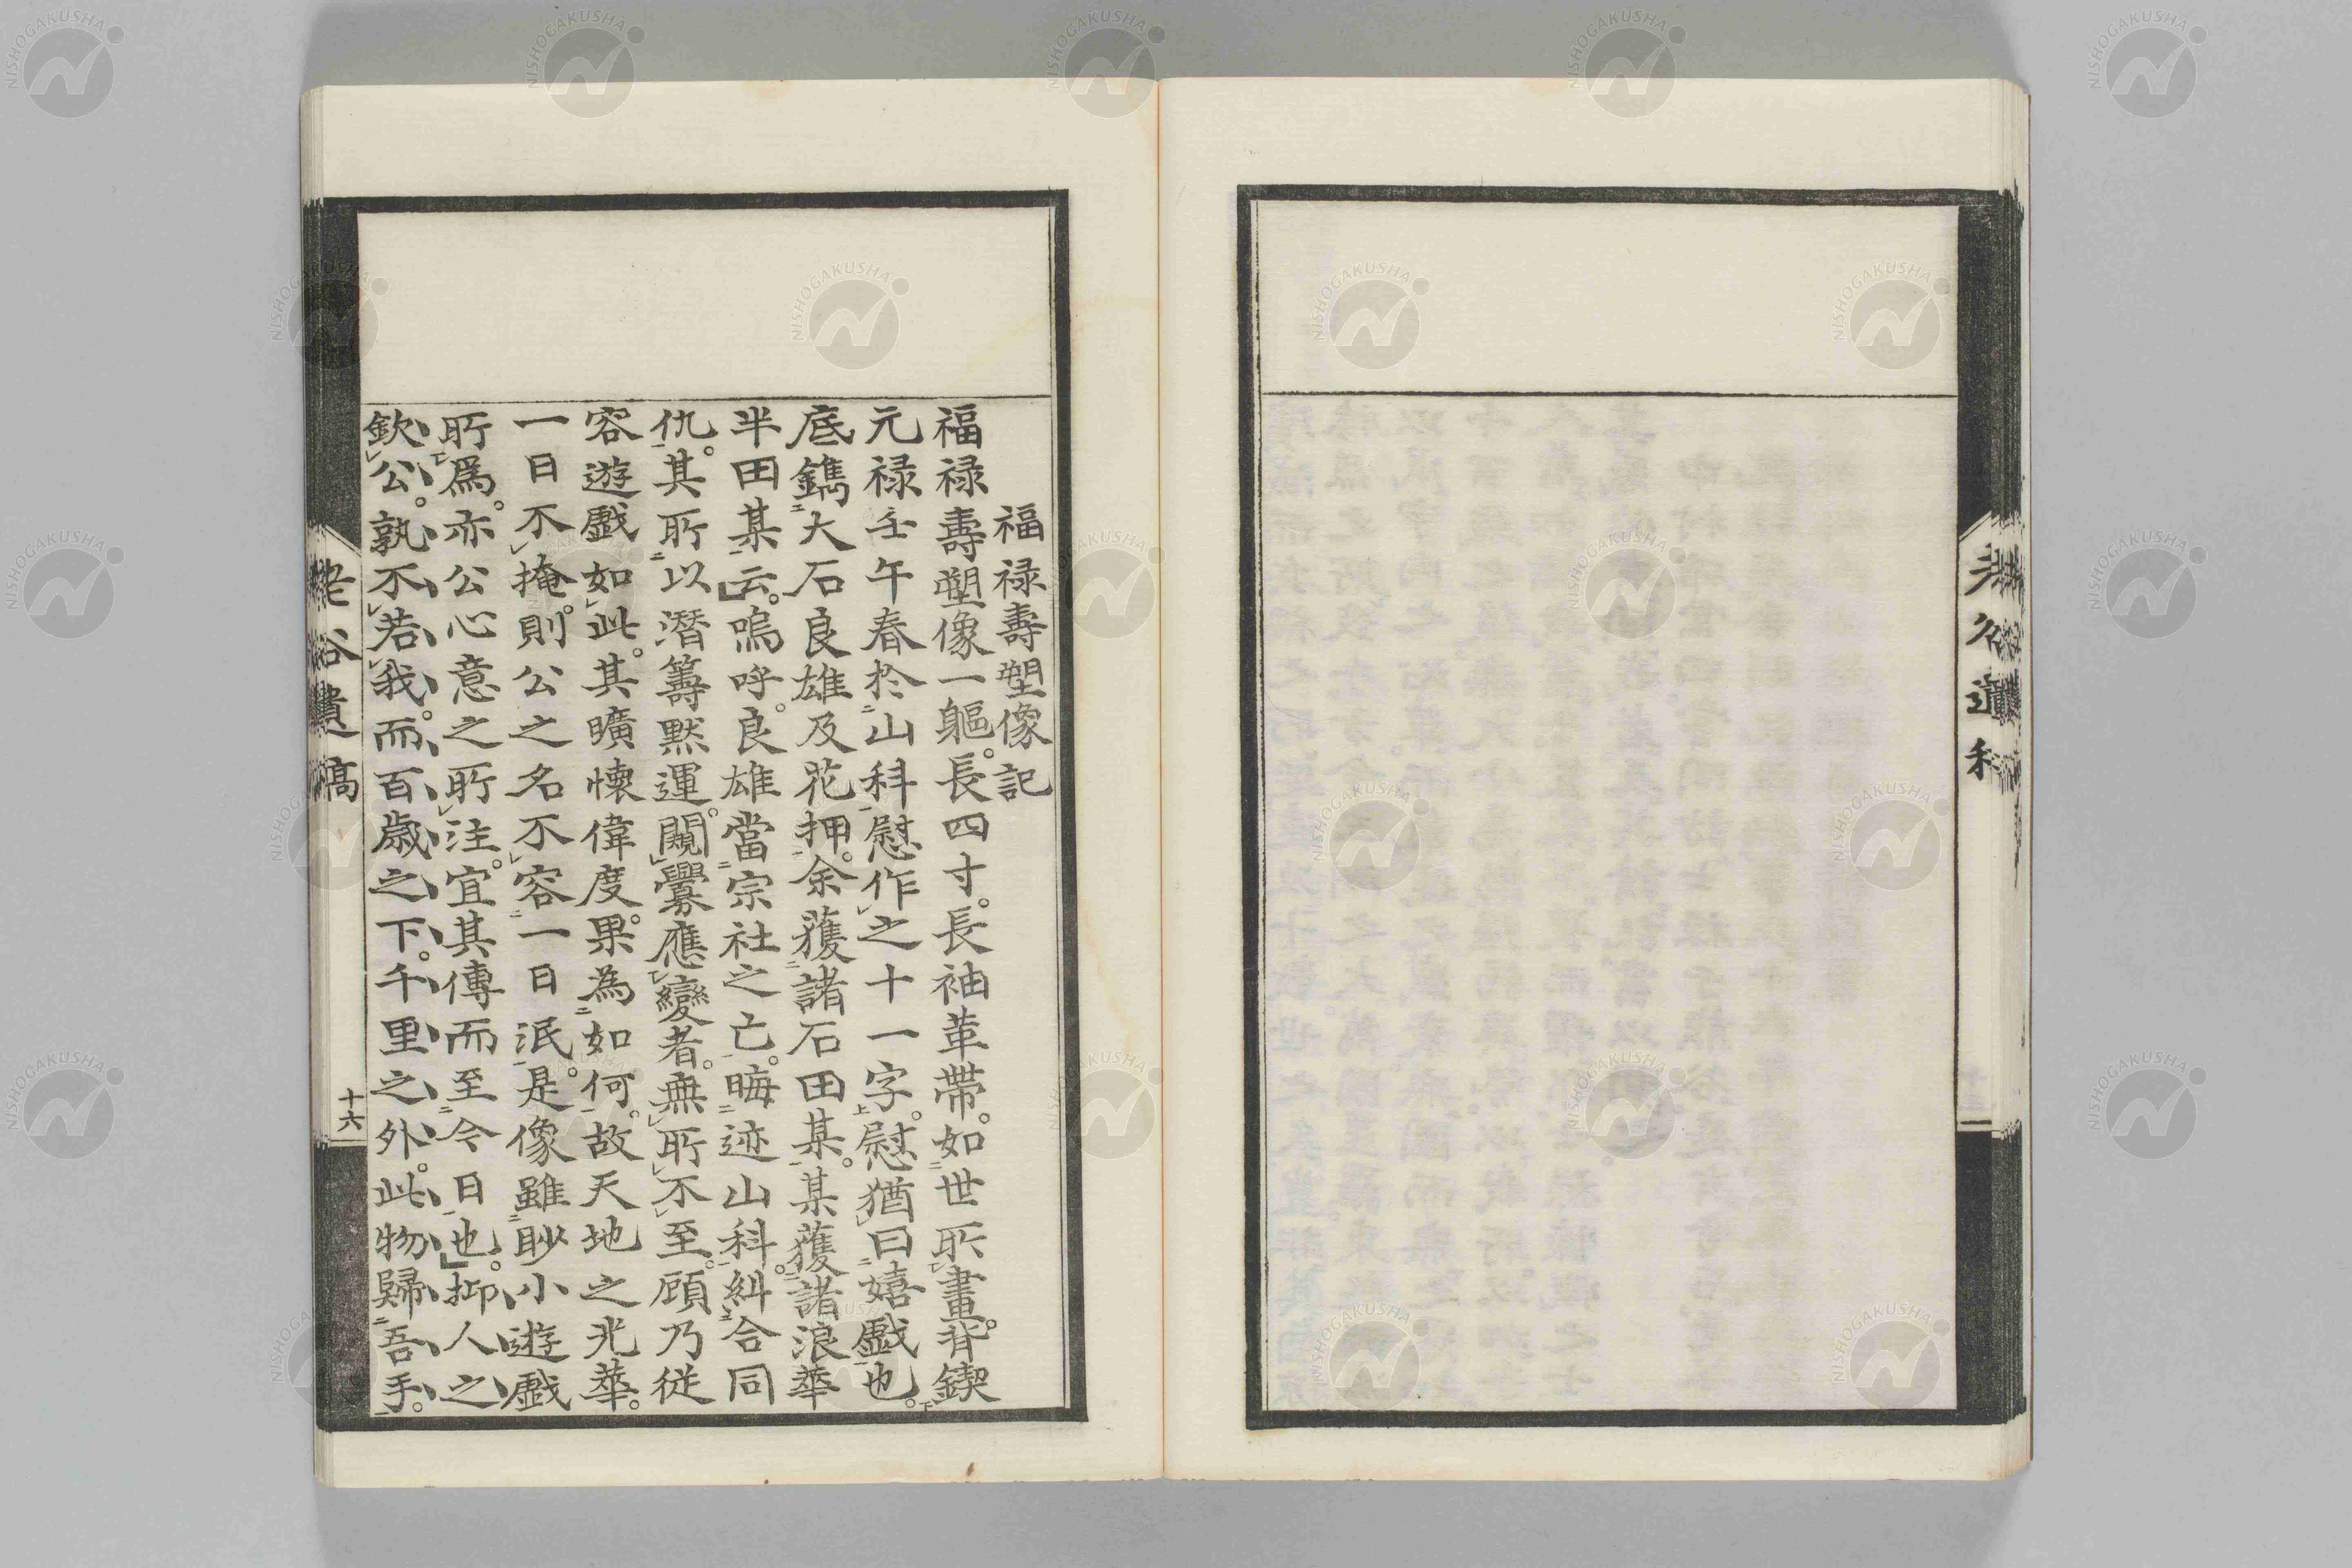 福禄壽塑像記
福禄壽塑像一軀。長四寸。長袖革帶。如世所畫。背鍥
元禄壬午春於山科慰作之十一字。慰猶曰嬉戲也。
底鐫大石良雄及花押。余獲諸石田某。某獲諸浪華
半田某云。嗚呼。良雄當宗社之亡。晦迹山科。糾合同
仇。其所以潛籌默運。闚釁應變者。無所不至。顧乃從
容遊戲如此。其曠懷偉度。果為如何。故天地之光華。
一日不掩。則公之名不容一日泯。是像雖眇小遊戲
所爲。亦公心意之所注。宜其傳而至今日也。抑人之
欽公。孰不若我。而百歳之下。千里之外。此物歸吾手。
老谷遺稿
十六
NISHOGAKUSHA